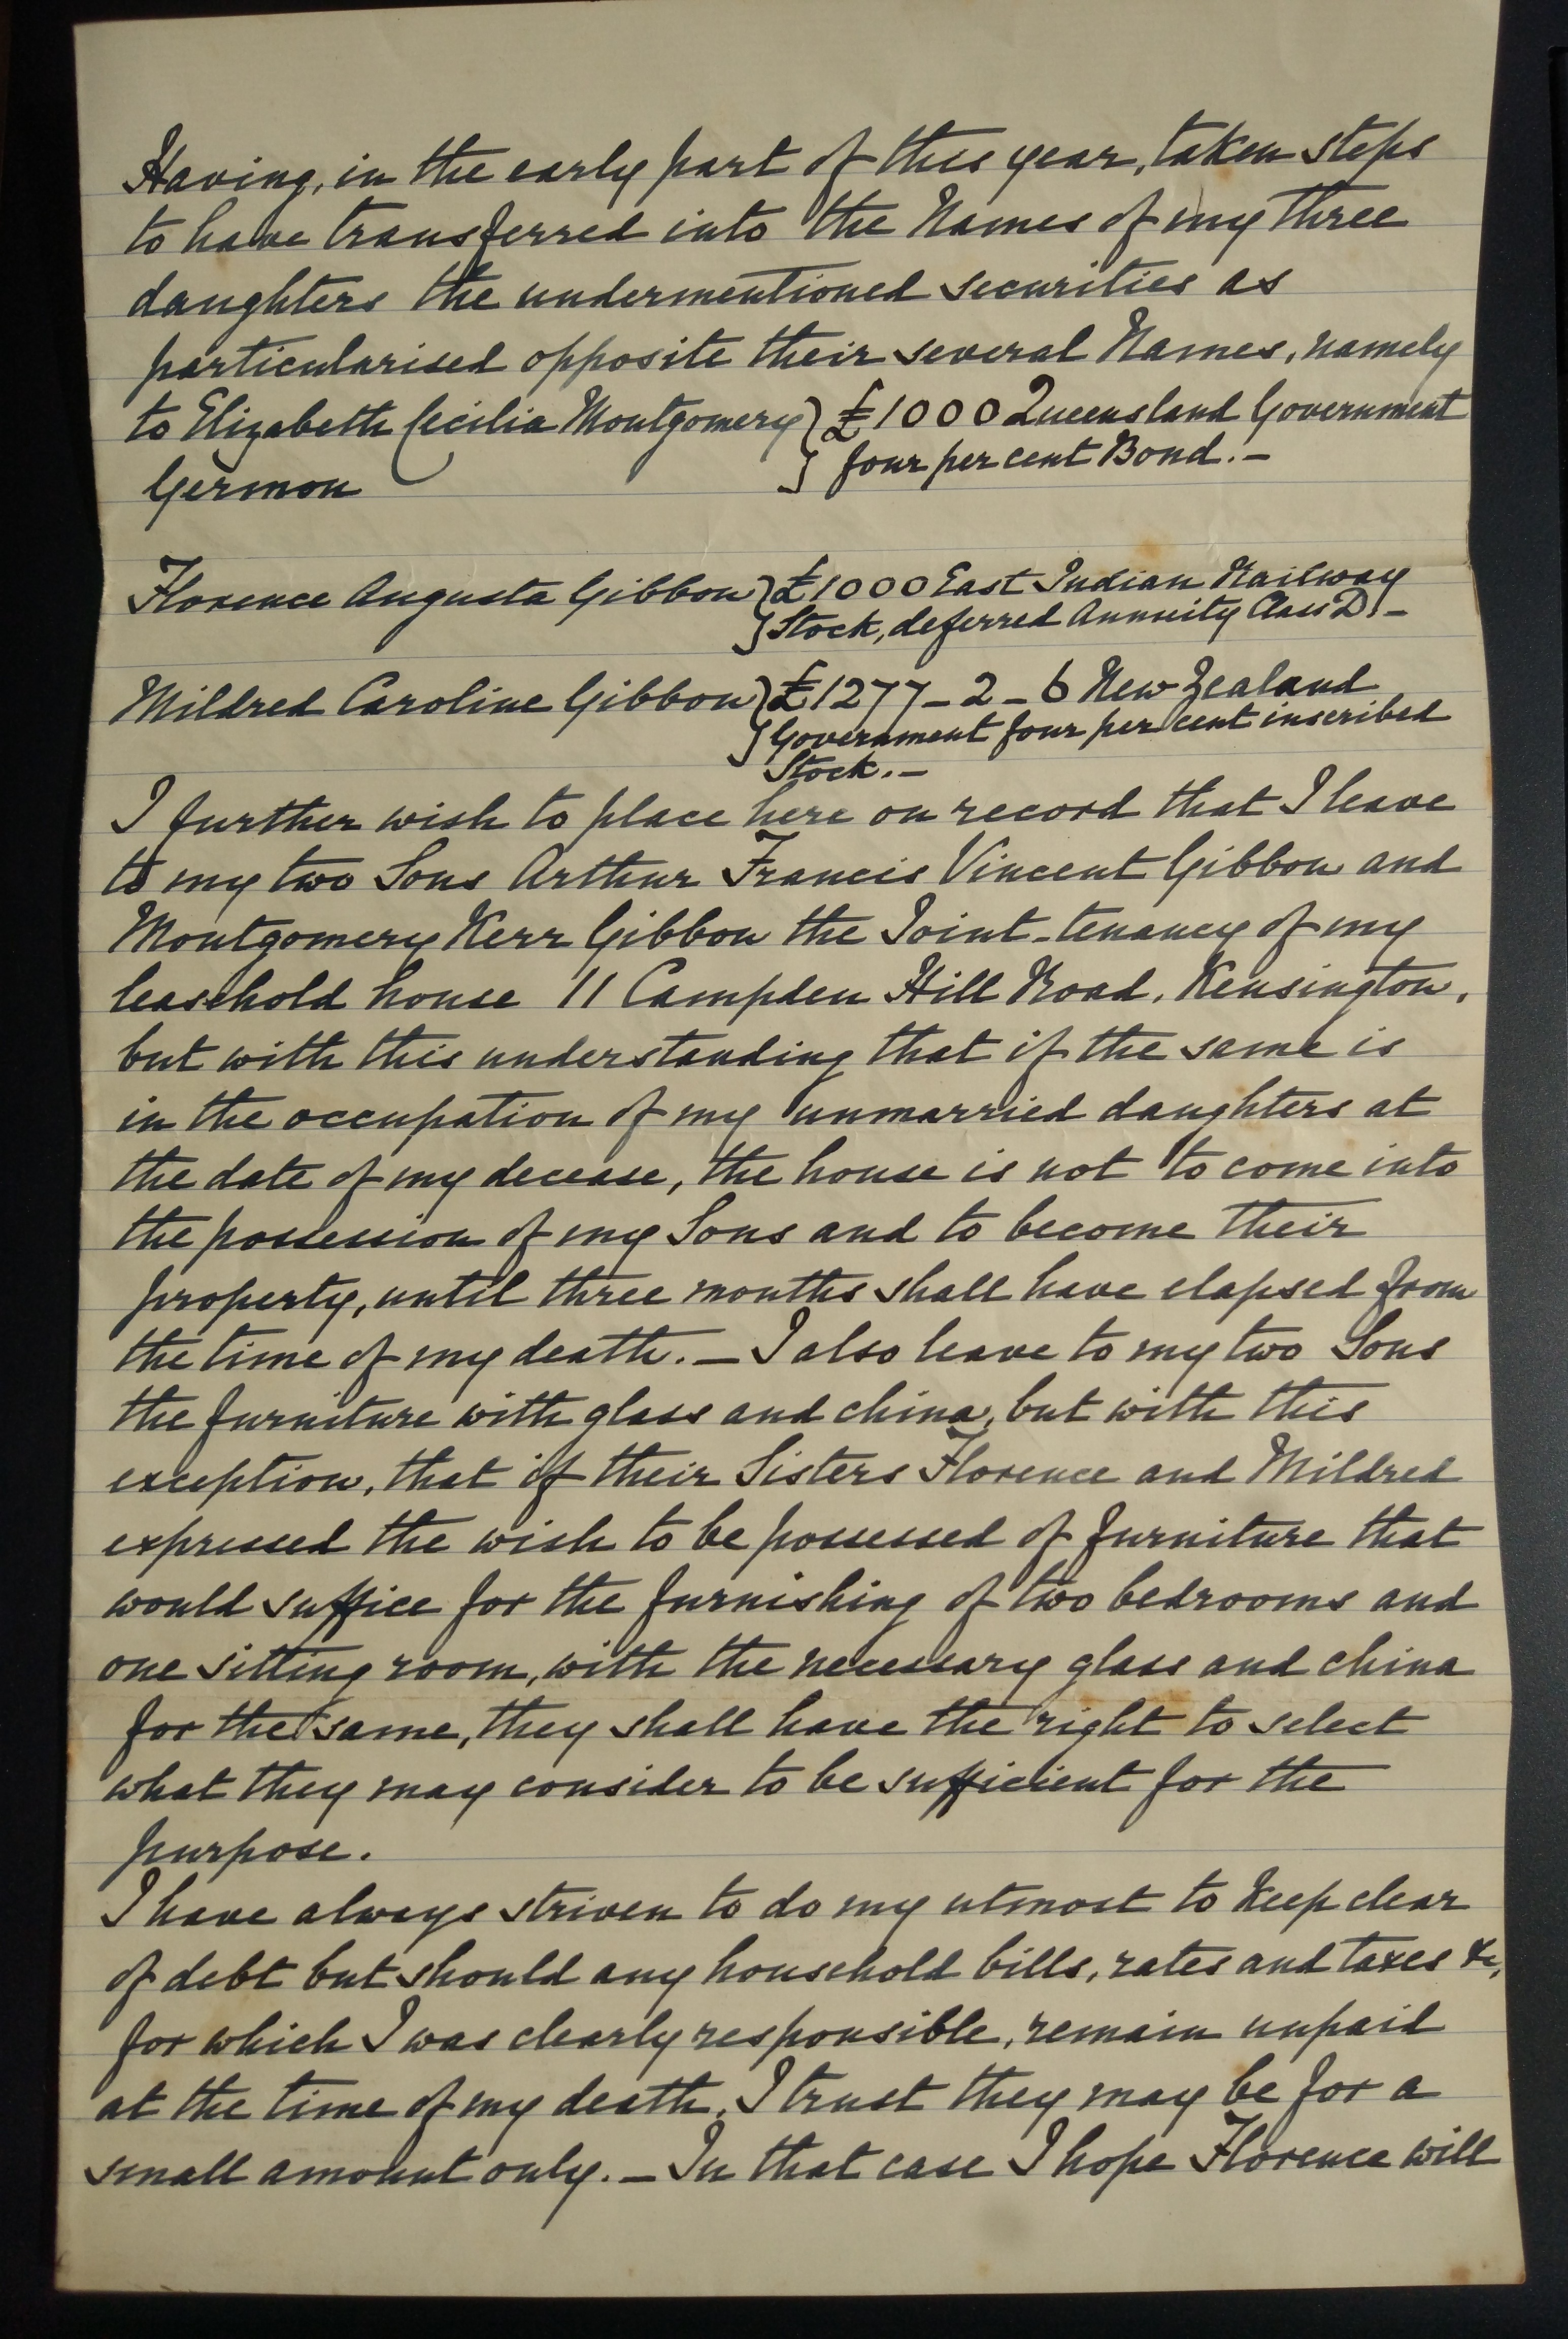 Having, in the early part of this year, taken steps
to have transferred into the Names of my three
daughters the undermentioned securities as
particularised opposite their several Names, namely
to Elizabeth Cecilia Montgomery } £1000 Queensland Government
Germon } four per cent Bond.—
Florence Augusta Gibbon } £1000 East Indian Railway
} Stock, deferred Annuity Class D.—
Mildred Caroline Gibbon } £1277-2-6 New Zealand
} Government four per cent inscribed
Stock.—
I further wish to place here on record that I leave
to my two Sons Arthur Francis Vincent Gibbon and
Montgomery Kerr Gibbon the Joint-tenancy of my
leasehold house 11 Campden Hill Road, Kensington,
but with this understanding that if the same is
in the occupation of my unmarried daughters at
the date of my decease, the house is not to come into
the possession of my Sons and to become their
property, until three months shall have elapsed from
the time of my death.— I also leave to my two Sons
the furniture with glass and china, but with this
exception, that if their Sisters Florence and Mildred
expressed the wish to be possessed of furniture that
would suffice for the furnishing of two bedrooms and
one sitting room, with the necessary glass and china
for the same, they shall have the right to select
what they may consider to be sufficient for the
purpose.
I have always striven to do my utmost to keep clear
of debt but should any household bills, rates and taxes &c,
for which I was clearly responsible, remain unpaid
at the time of my death, I trust they may be for a
small amount only.— In that case I hope Florence will